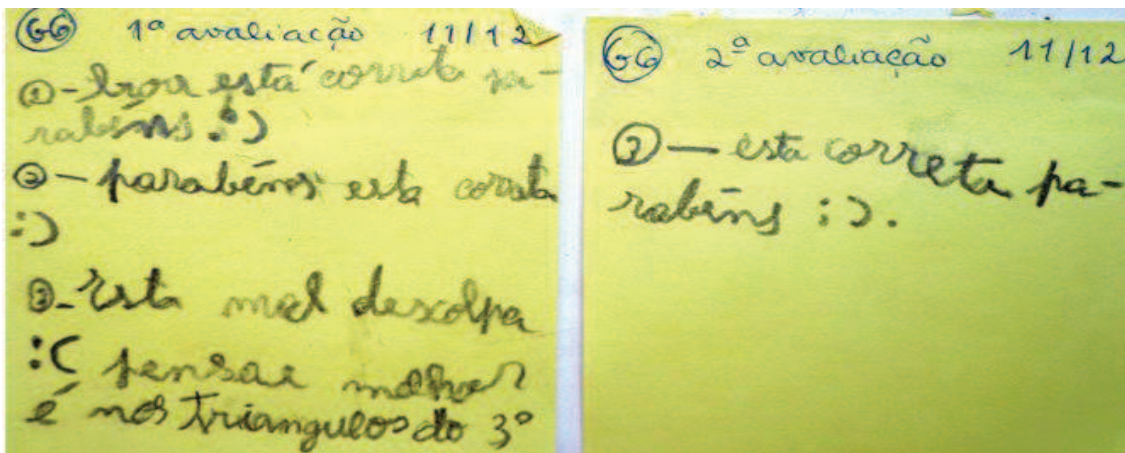 G6 1ª avaliação 11/12
①- boa está correta pa-
rabéns :)
②- parabéns está correta
:)
③- Está mal descolpa
:( pensai melhor
é nos triangulos do 3º
G6 2ª avaliação 11/12
③ — esta correta pa-
rabéns :).